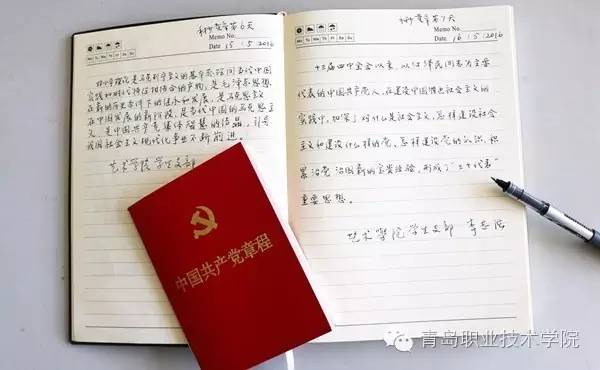 手抄党章第6天
Memo No.
Mo Tu We Th Fr Sa Su
Date 15.5.2016
邓小平理论是马克思主义的基本原理同当代中国
实践和时代特征相结合的产物，是毛泽东思想
在新的历史条件下的继承和发展，是马克思主义
在中国发展的新阶段，是当代中国的马克思主
义，是中国共产党集体智慧的结晶，引导
我国社会主义现代化事业不断前进。
艺术学院学生支部
手抄党章第7天
Memo No.
Mo Tu We Th Fr Sa Su
Date 16.5.2016
十三届四中全会以来，以江泽民同志为主要
代表的中国共产党人，在建设中国特色社会主义的
实践中，加深了对什么是社会主义、怎样建设社会
主义和建设什么样的党、怎样建设党的认识，积
累治党治国新的宝贵经验，形成了“三个代表”
重要思想。
艺术学院学生支部 李
中国共产党章程
青岛职业技术学院